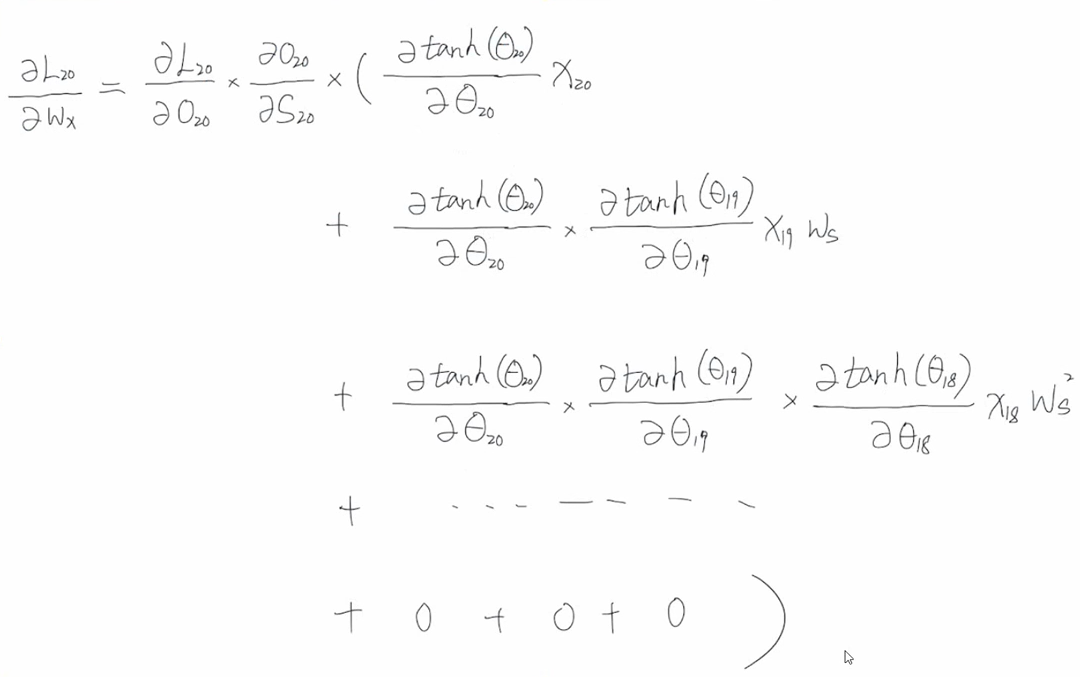 ∂L₂₀/∂Wₓ = ∂L₂₀/∂O₂₀ × ∂O₂₀/∂S₂₀ × ( ∂tanh(θ₂₀)/∂θ₂₀ X₂₀
+ ∂tanh(θ₂₀)/∂θ₂₀ × ∂tanh(θ₁₉)/∂θ₁₉ X₁₉ Wₛ
+ ∂tanh(θ₂₀)/∂θ₂₀ × ∂tanh(θ₁₉)/∂θ₁₉ × ∂tanh(θ₁₈)/∂θ₁₈ X₁₈ Wₛ²
+ ... — - - -
+ 0 + 0 + 0 )